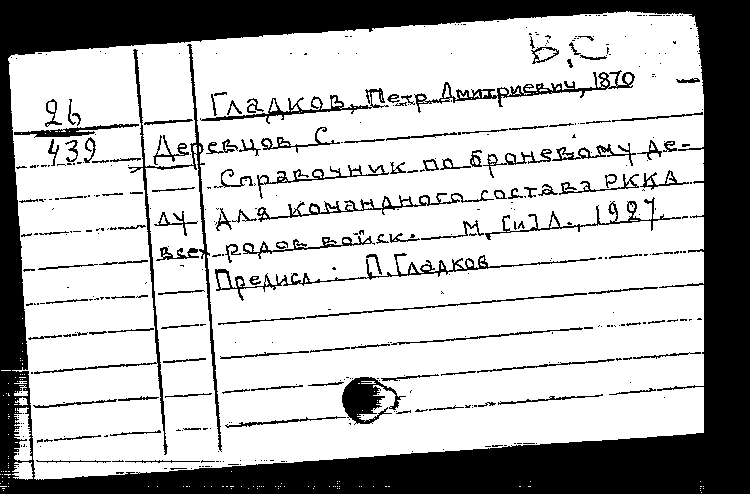 В.С
26
Гладков, Петр Дмитриевич, 1870 —
439 Деревцов, С.
Справочник по броневому де-
лу для командного состава РККА
всех родов войск. М. [и] Л., 1927.
Предисл.: П. Гладков